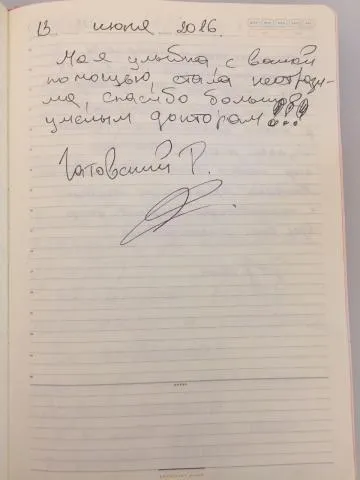 13 июня 2016.
Моя улыбка, с вашей
помощью, стала неотрази-
ма, спасибо большое
умелым докторам!!!
Чатовский Р.